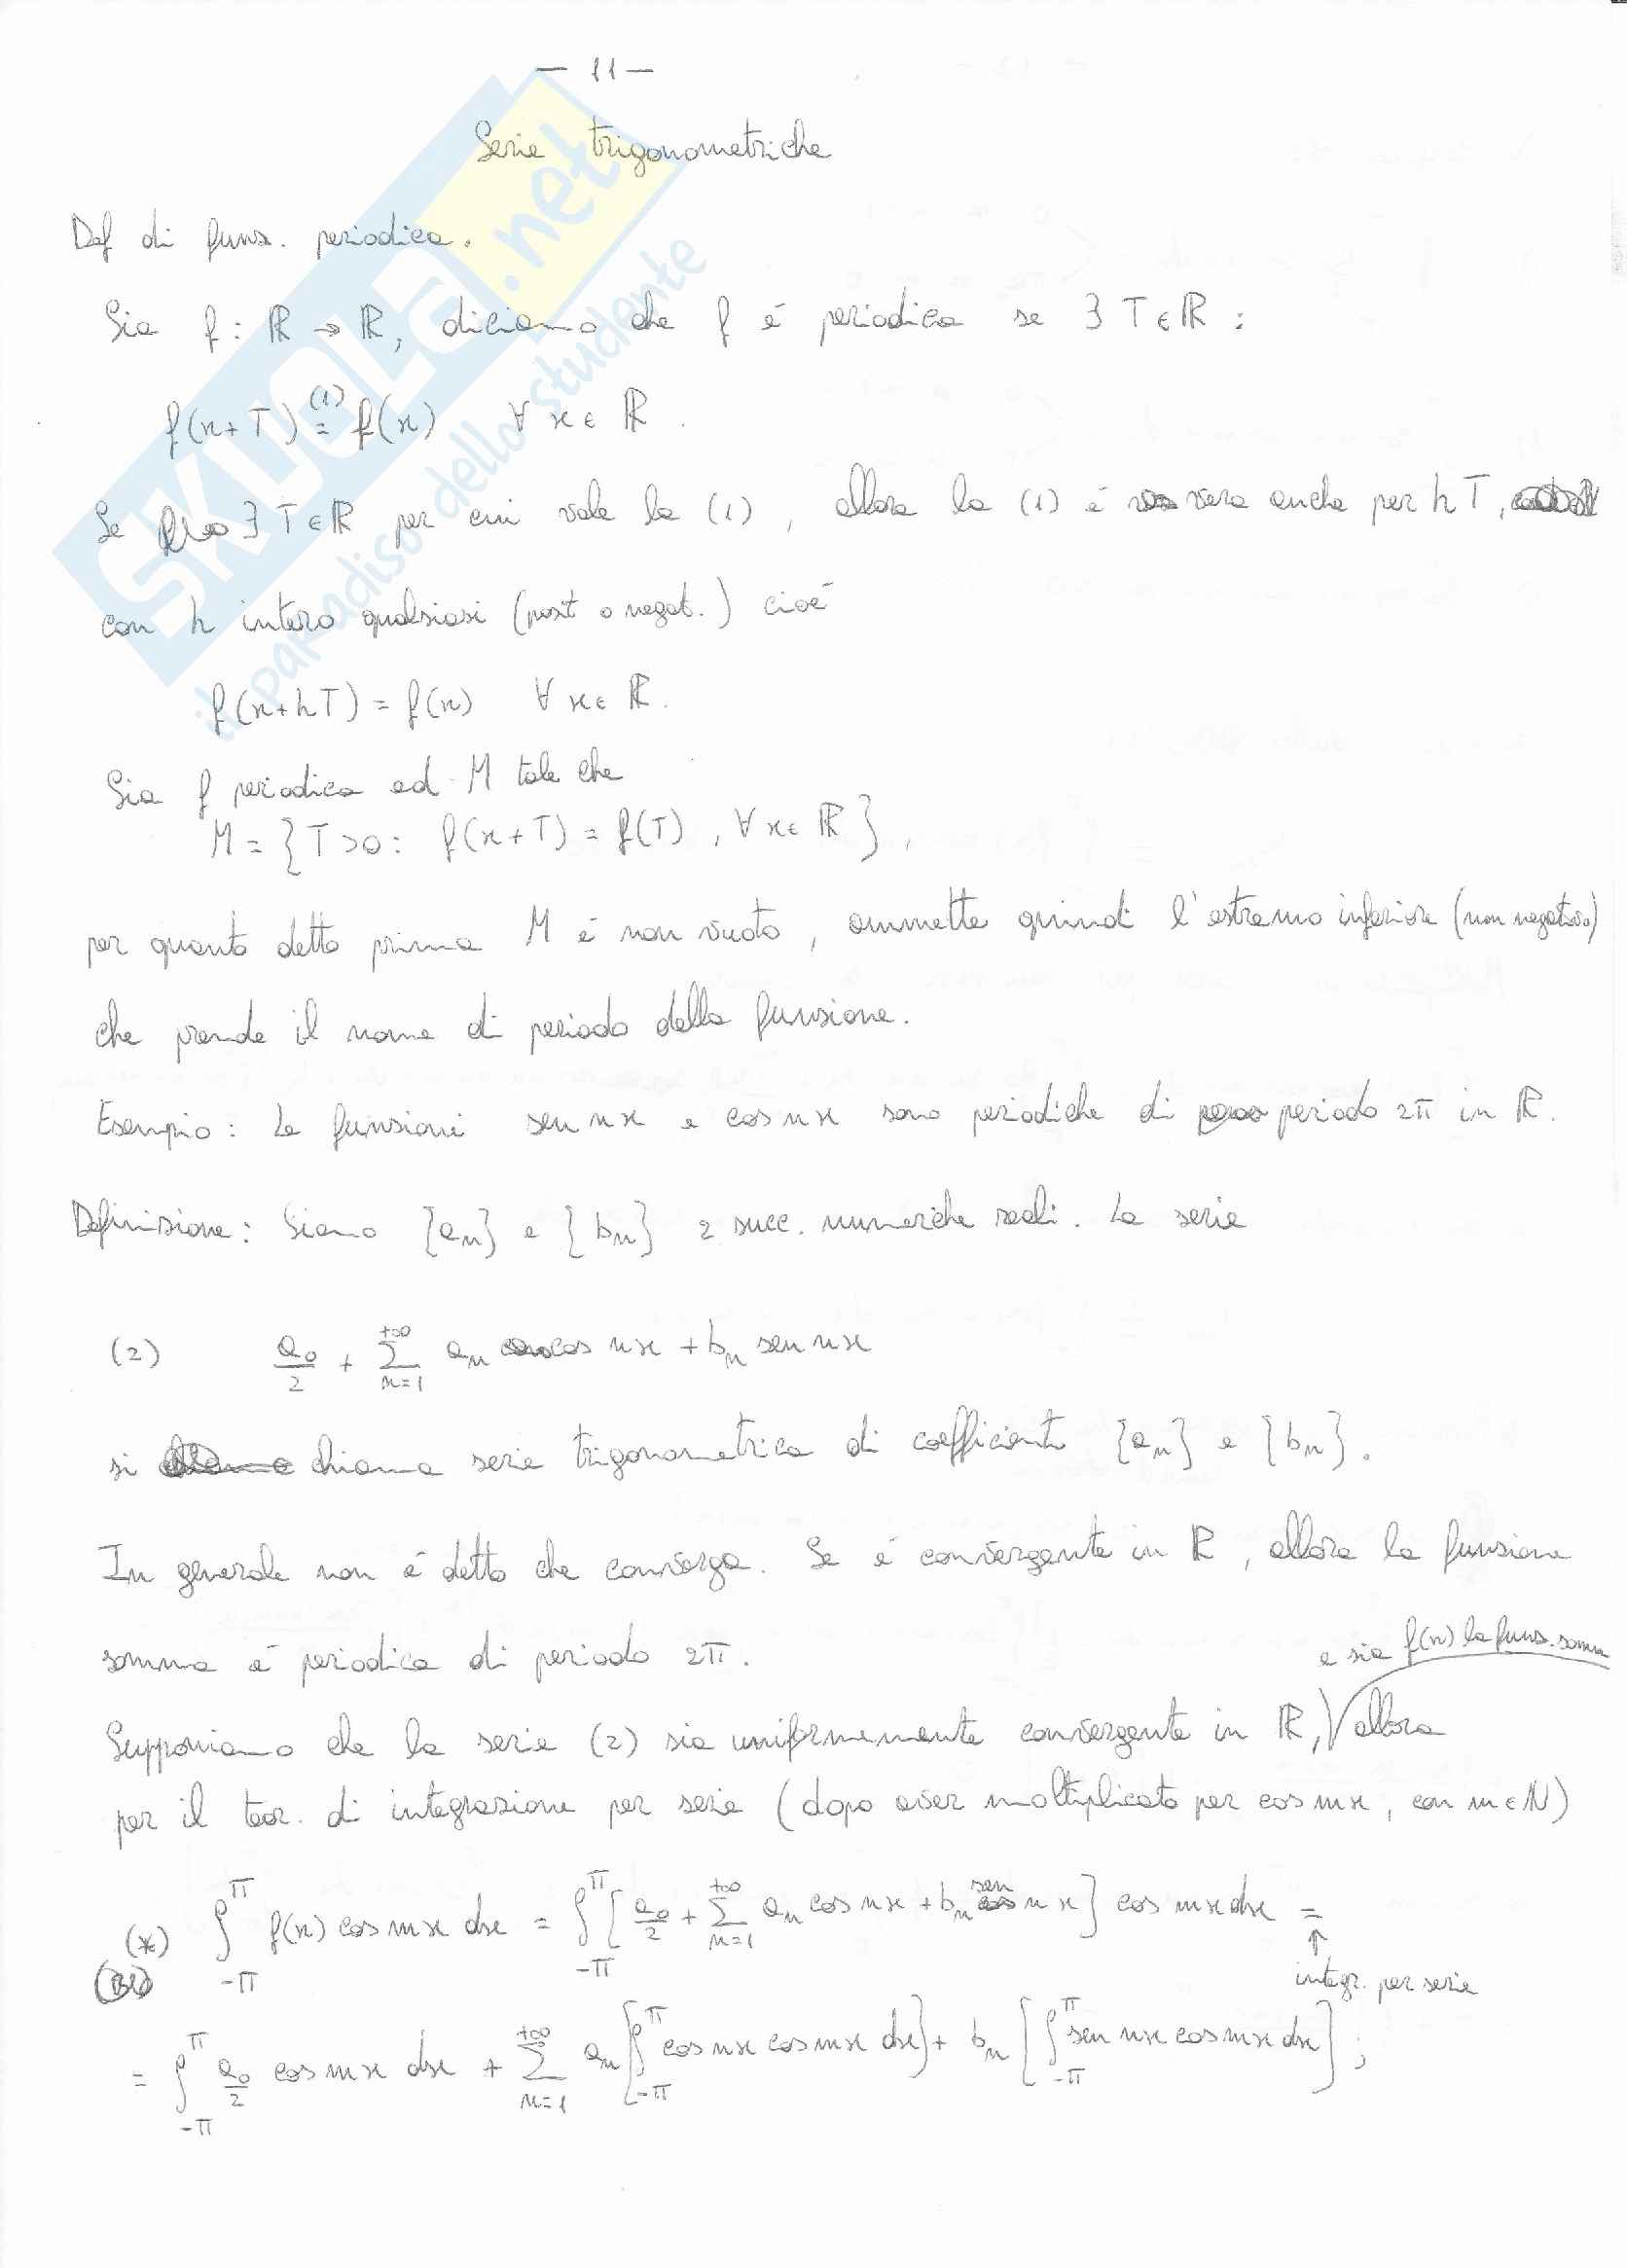 — 11 —
Serie trigonometriche
Def di funz. periodica.
Sia f: ℝ → ℝ, diciamo che f é periodica se ∃ T ∈ ℝ :
f(x+T) (1)= f(x) ∀ x ∈ ℝ.
Se ∃ T ∈ ℝ per cui vale la (1), allora la (1) é vera anche per hT,
con h intero qualsiasi (posit o negat.) cioé
f(x+hT) = f(x) ∀ x ∈ ℝ.
Sia f periodica ed M tale che
M = { T>0 : f(x+T) = f(T), ∀ x ∈ ℝ },
per quanto detto prima M é non vuoto, ammette quindi l'estremo inferiore (non negativo)
che prende il nome di periodo della funzione.
Esempio: Le funzioni sen nx e cos nx sono periodiche di periodo 2π in ℝ.
Definizione: Siano {an} e {bn} 2 succ. numeriche reali. La serie
(2) a0/2 + +∞ Σ n=1 an cos nx + bn sen nx
si chiama serie trigonometrica di coefficienti {an} e {bn}.
In generale non é detto che converga. Se é convergente in ℝ, allora la funzione
somma é periodica di periodo 2π.
e sia f(x) la funz. somma
Supponiamo che la serie (2) sia uniformemente convergente in ℝ, allora
per il teor. di integrazione per serie (dopo aver moltiplicato per cos mx, con m ∈ N)
(*) ∫ π -π f(x) cos mx dx = ∫ π -π [ a0/2 + +∞ Σ n=1 an cos nx + bn sen nx ] cos mx dx =
↑
integr. per serie
= ∫ π -π a0/2 cos mx dx + +∞ Σ n=1 an [ ∫ π -π cos nx cos mx dx ] + bn [ ∫ π -π sen nx cos mx dx ] ;
SKUOLA.net
il paradiso dello studente